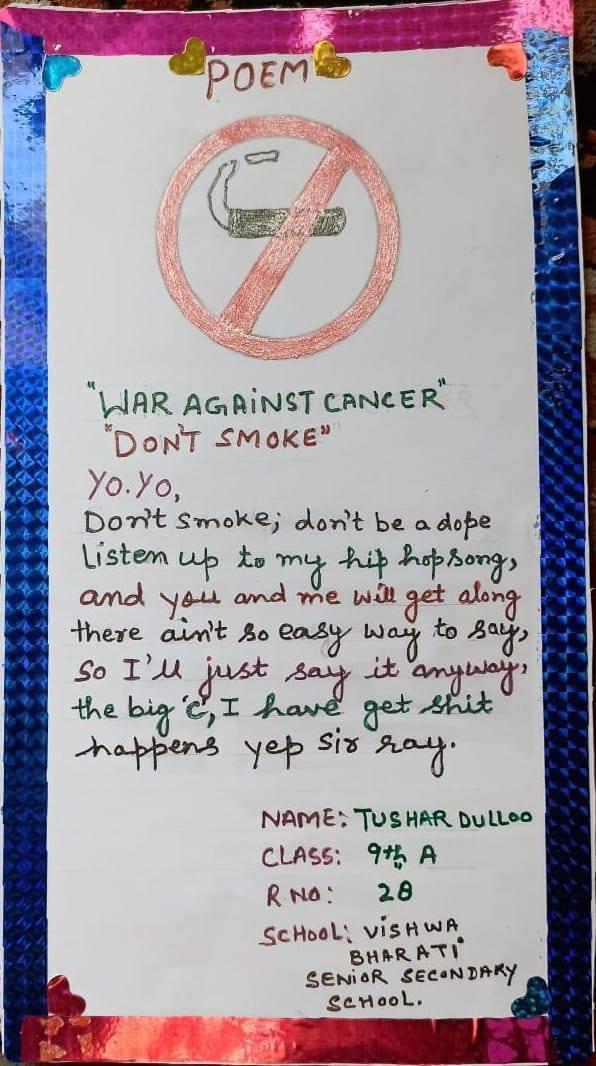 POEM
"WAR AGAINST CANCER"
"DON'T SMOKE"
YO.YO,
Don't smoke; don't be a dope
Listen up to my hip hop song,
and you and me will get along
there ain't so easy way to say,
So I'll just say it anyway,
the big 'c', I have get shit
happens yep sir ray.
NAME: TUSHAR DULLOO
CLASS: 9th A
R.NO: 28
SCHOOL: VISHWA
BHARATI
SENIOR SECONDARY
SCHOOL.